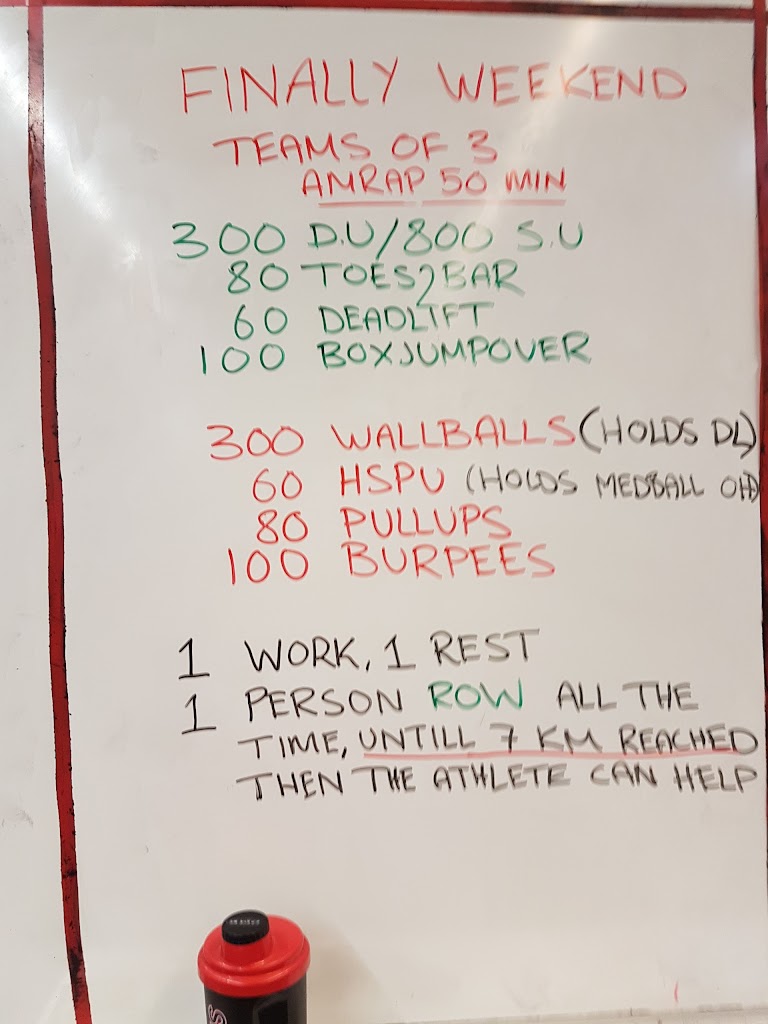 FINALLY WEEKEND
TEAMS OF 3
AMRAP 50 MIN
300 D.U/800 S.U
80 TOES2BAR
60 DEADLIFT
100 BOXJUMPOVER
300 WALLBALLS (HOLDS DL)
60 HSPU (HOLDS MEDBALL OH)
80 PULLUPS
100 BURPEES
1 WORK, 1 REST
1 PERSON ROW ALL THE
TIME, UNTILL 7 KM REACHED
THEN THE ATHLETE CAN HELP